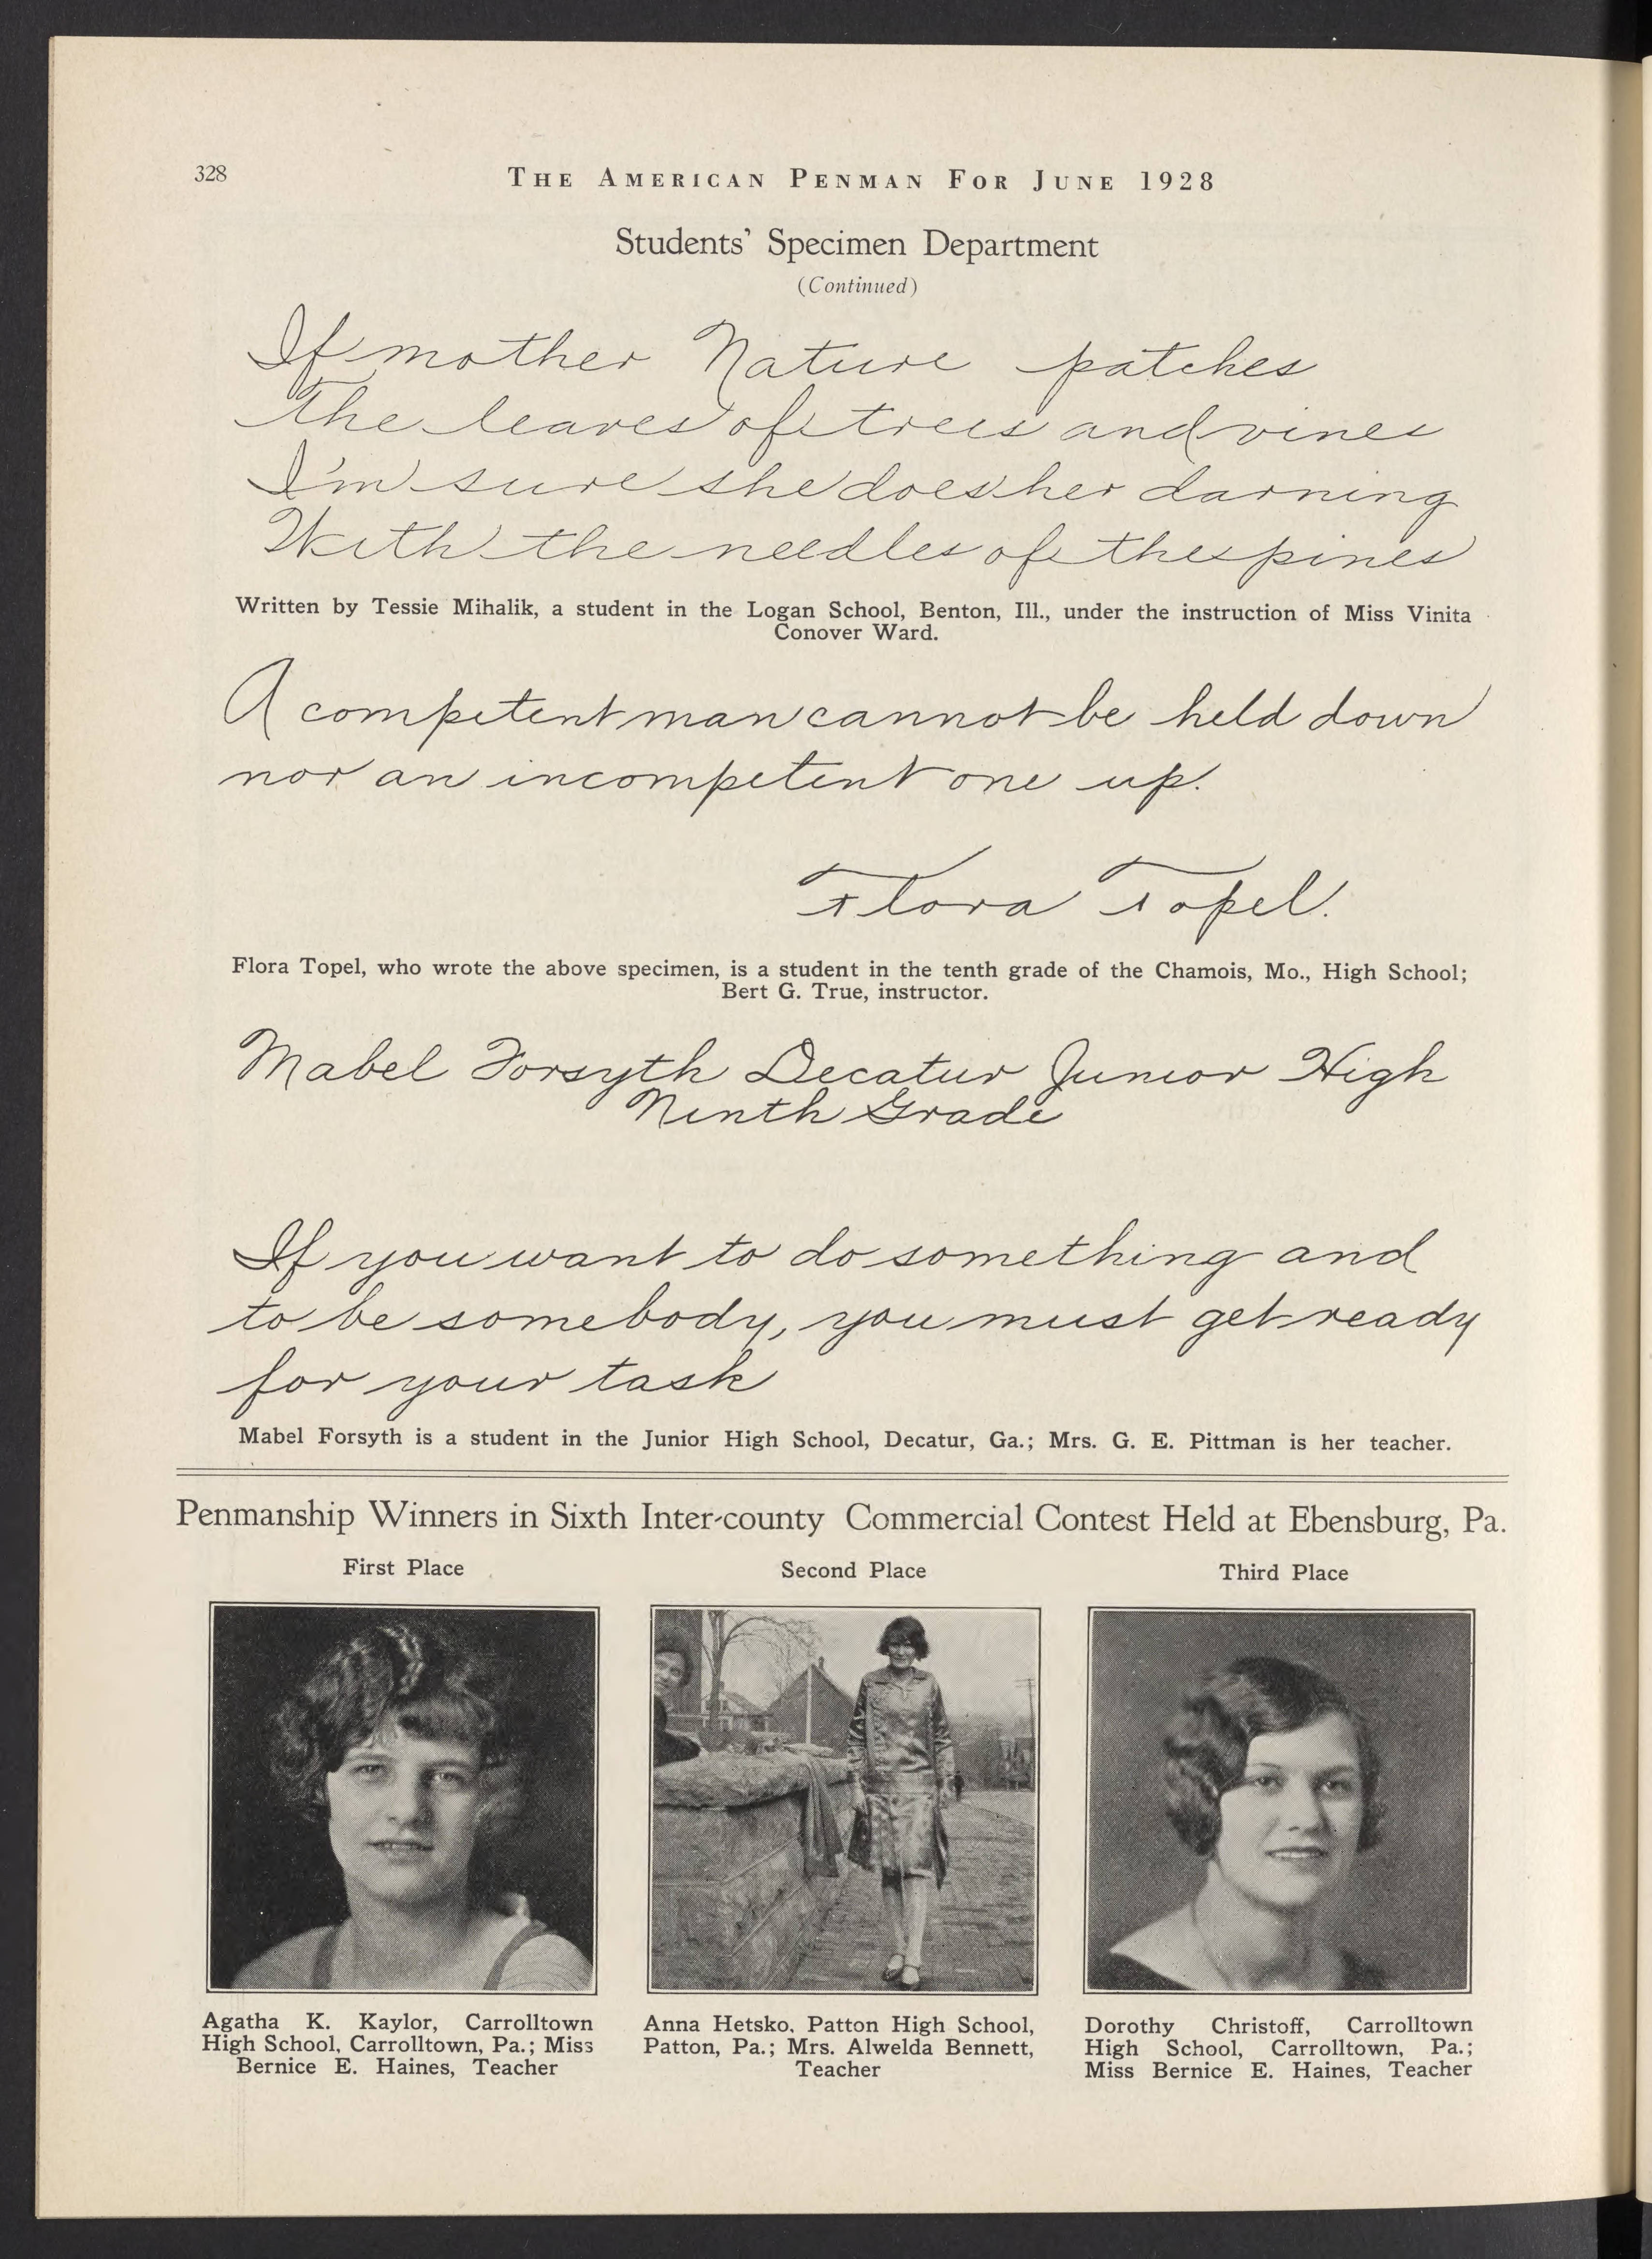 328
THE AMERICAN PENMAN FOR JUNE 1928
Students' Specimen Department
(Continued)
If mother Nature patches
The leaves of trees and vines
I'm sure she does her darning
With the needles of the pines
Written by Tessie Mihalik, a student in the Logan School, Benton, Ill., under the instruction of Miss Vinita
Conover Ward.
A competent man cannot be held down
nor an incompetent one up.
Flora Topel.
Flora Topel, who wrote the above specimen, is a student in the tenth grade of the Chamois, Mo., High School;
Bert G. True, instructor.
Mabel Forsyth Decatur Junior High
Ninth Grade
If you want to do something and
to be somebody, you must get ready
for your task
Mabel Forsyth is a student in the Junior High School, Decatur, Ga.; Mrs. G. E. Pittman is her teacher.
Penmanship Winners in Sixth Inter-county Commercial Contest Held at Ebensburg, Pa.
First Place
Second Place
Third Place
Agatha K. Kaylor, Carrolltown
High School, Carrolltown, Pa.; Miss
Bernice E. Haines, Teacher
Anna Hetsko, Patton High School,
Patton, Pa.; Mrs. Alwelda Bennett,
Teacher
Dorothy Christoff, Carrolltown
High School, Carrolltown, Pa.;
Miss Bernice E. Haines, Teacher